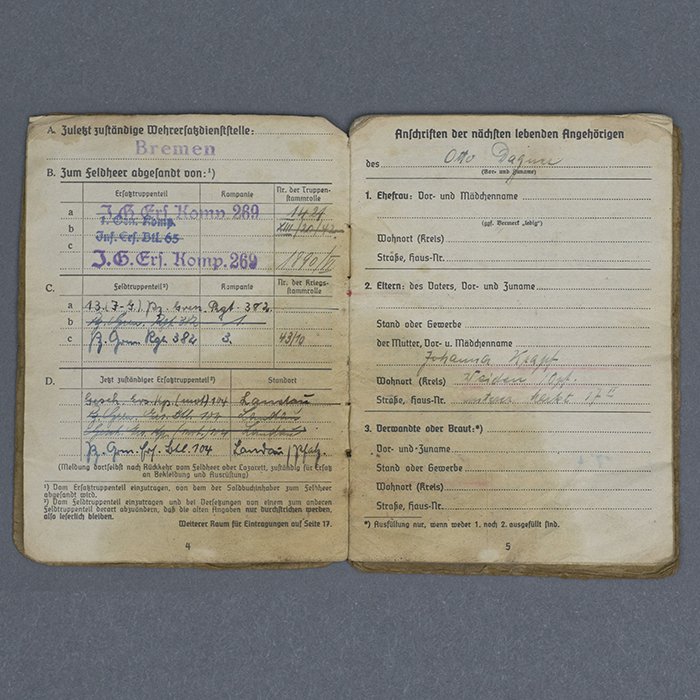 A. Zuletzt zuständige Wehrersatzdienststelle:
Bremen
B. Zum Feldheer abgesandt von:¹)
Ersatztruppenteil Kompanie Nr. der Truppenstammrolle
a J.G. Ers. Komp. 269 1421
b Komp. XIII/20/42
Inf. Ers. Btl. 65
c J.G. Ers. Komp. 269
C. Feldtruppenteil²) Kompanie Nr. der Kriegsstammrolle
a 13. (J-G.) Pz. Gren. Rgt. 382
b
c Pz. Gren. Rgt. 382 3. 43/10
D. Jetzt zuständiger Ersatztruppenteil²) Standort
(mot) 104 Landau
Landau
Landau
Pz. Gren. Ers. Btl. 104 Landau/Pfalz.
(Meldung dortselbst nach Rückkehr vom Feldheer oder Lazarett, zuständig für Ersatz
an Bekleidung und Ausrüstung)
¹) Vom Ersatztruppenteil einzutragen, von dem der Soldbuchinhaber zum Feldheer
abgesandt wird.
²) Vom Feldtruppenteil einzutragen und bei Versetzungen von einem zum anderen
Feldtruppenteil derart abzuändern, daß die alten Angaben nur durchstrichen werden,
also leserlich bleiben.
Weiterer Raum für Eintragungen auf Seite 17.
4
Anschriften der nächsten lebenden Angehörigen
des Otto
(Vor- und Zuname)
1. Ehefrau: Vor- und Mädchenname
(ggf. Vermerk „ledig“)
Wohnort (Kreis)
Straße, Haus-Nr.
2. Eltern: des Vaters, Vor- und Zuname
Stand oder Gewerbe
der Mutter, Vor- u. Mädchenname
Johanna
Wohnort (Kreis) Weiden
Straße, Haus-Nr. 17
3. Verwandte oder Braut:*)
Vor- und Zuname
Stand oder Gewerbe
Wohnort (Kreis)
Straße, Haus-Nr.
*) Ausfüllung nur, wenn weder 1. noch 2. ausgefüllt sind.
5